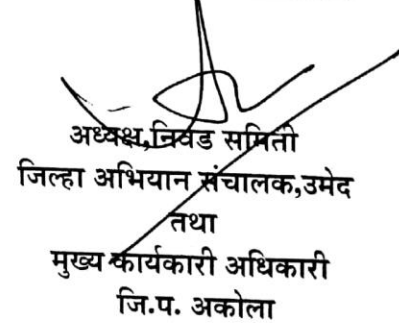 अध्यक्ष,निवड समिती
जिल्हा अभियान संचालक,उमेद
तथा
मुख्य कार्यकारी अधिकारी
जि.प. अकोला